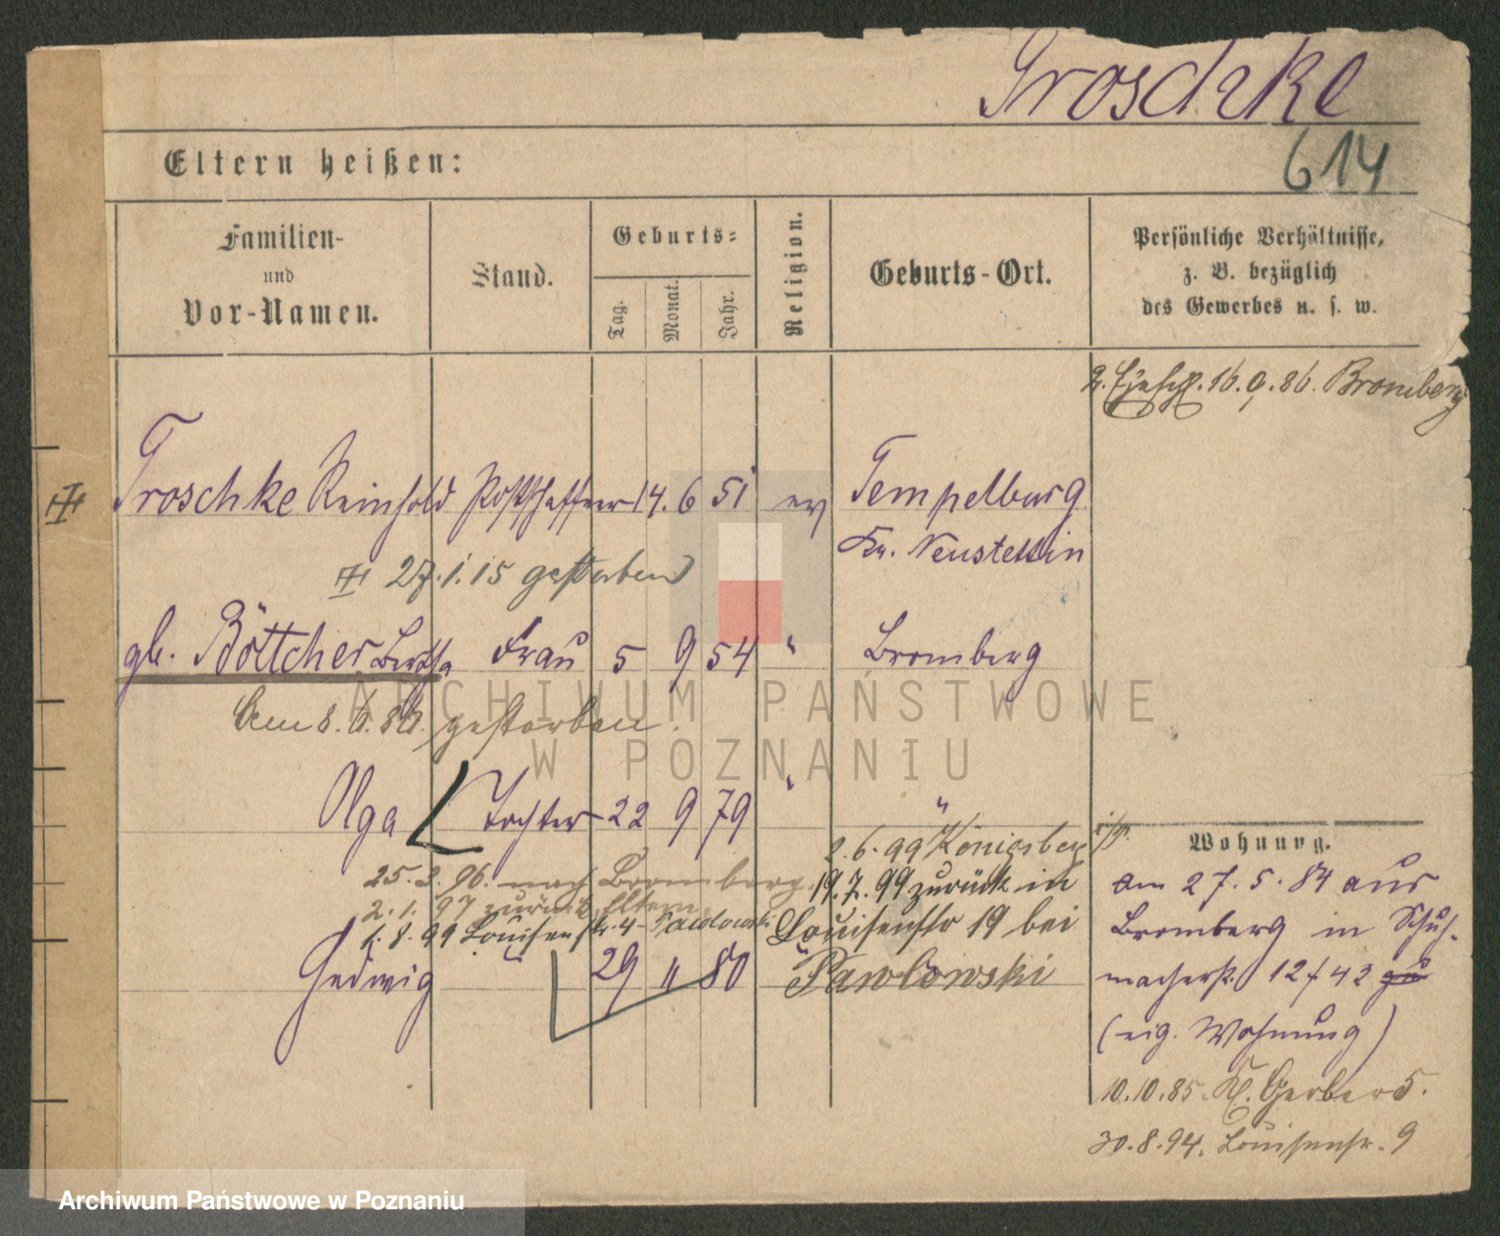 Troschke
614
Eltern heißen:
Familien-
und
Vor-Namen.
Stand.
Geburts-
Tag.
Monat.
Jahr.
Religion.
Geburts-Ort.
Persönliche Verhältnisse,
z. B. bezüglich
des Gewerbes u. s. w.
2. 86. Bromberg
Troschke Reinhold Postschaffner 14. 6 51 ev Tempelburg
Kr. Neustettin
27. 1. 15 gestorben
gb. Böttcher Bertha Frau 5 9 54 " Bromberg
Am 8. 6. 86. gestorben.
Olga Tochter 22 9 79 " "
25. 3. 96. nach Bromberg.
2. 1. 97 zurück Eltern
1. 8. 99 Louisenstr. 4 Pawlowski
2. 6. 99 Königsberg i/pr.
19. 7. 99 zurück in
Louisenstr 19 bei
Pawlowski
Hedwig " 29 " 80 "
Wohnung.
Am 27. 5. 84 aus
Bromberg in Schuh-
macherstr. 12/42
(eig. Wohnung)
10. 10. 85. Kl. Gerber 5.
30. 8. 94. Louisenstr. 9
ARCHIWUM PAŃSTWOWE
W POZNANIU
Archiwum Państwowe w Poznaniu